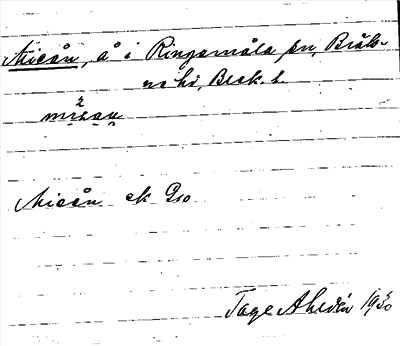 Micån, å i Ringamåla sn, Bräk-
ne hd, Blek. l.
Micån ek Gso
Tage Ahldén 1930